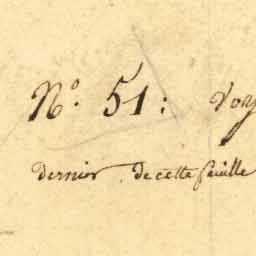 N.o 51: Voy
dernier de cette feuille